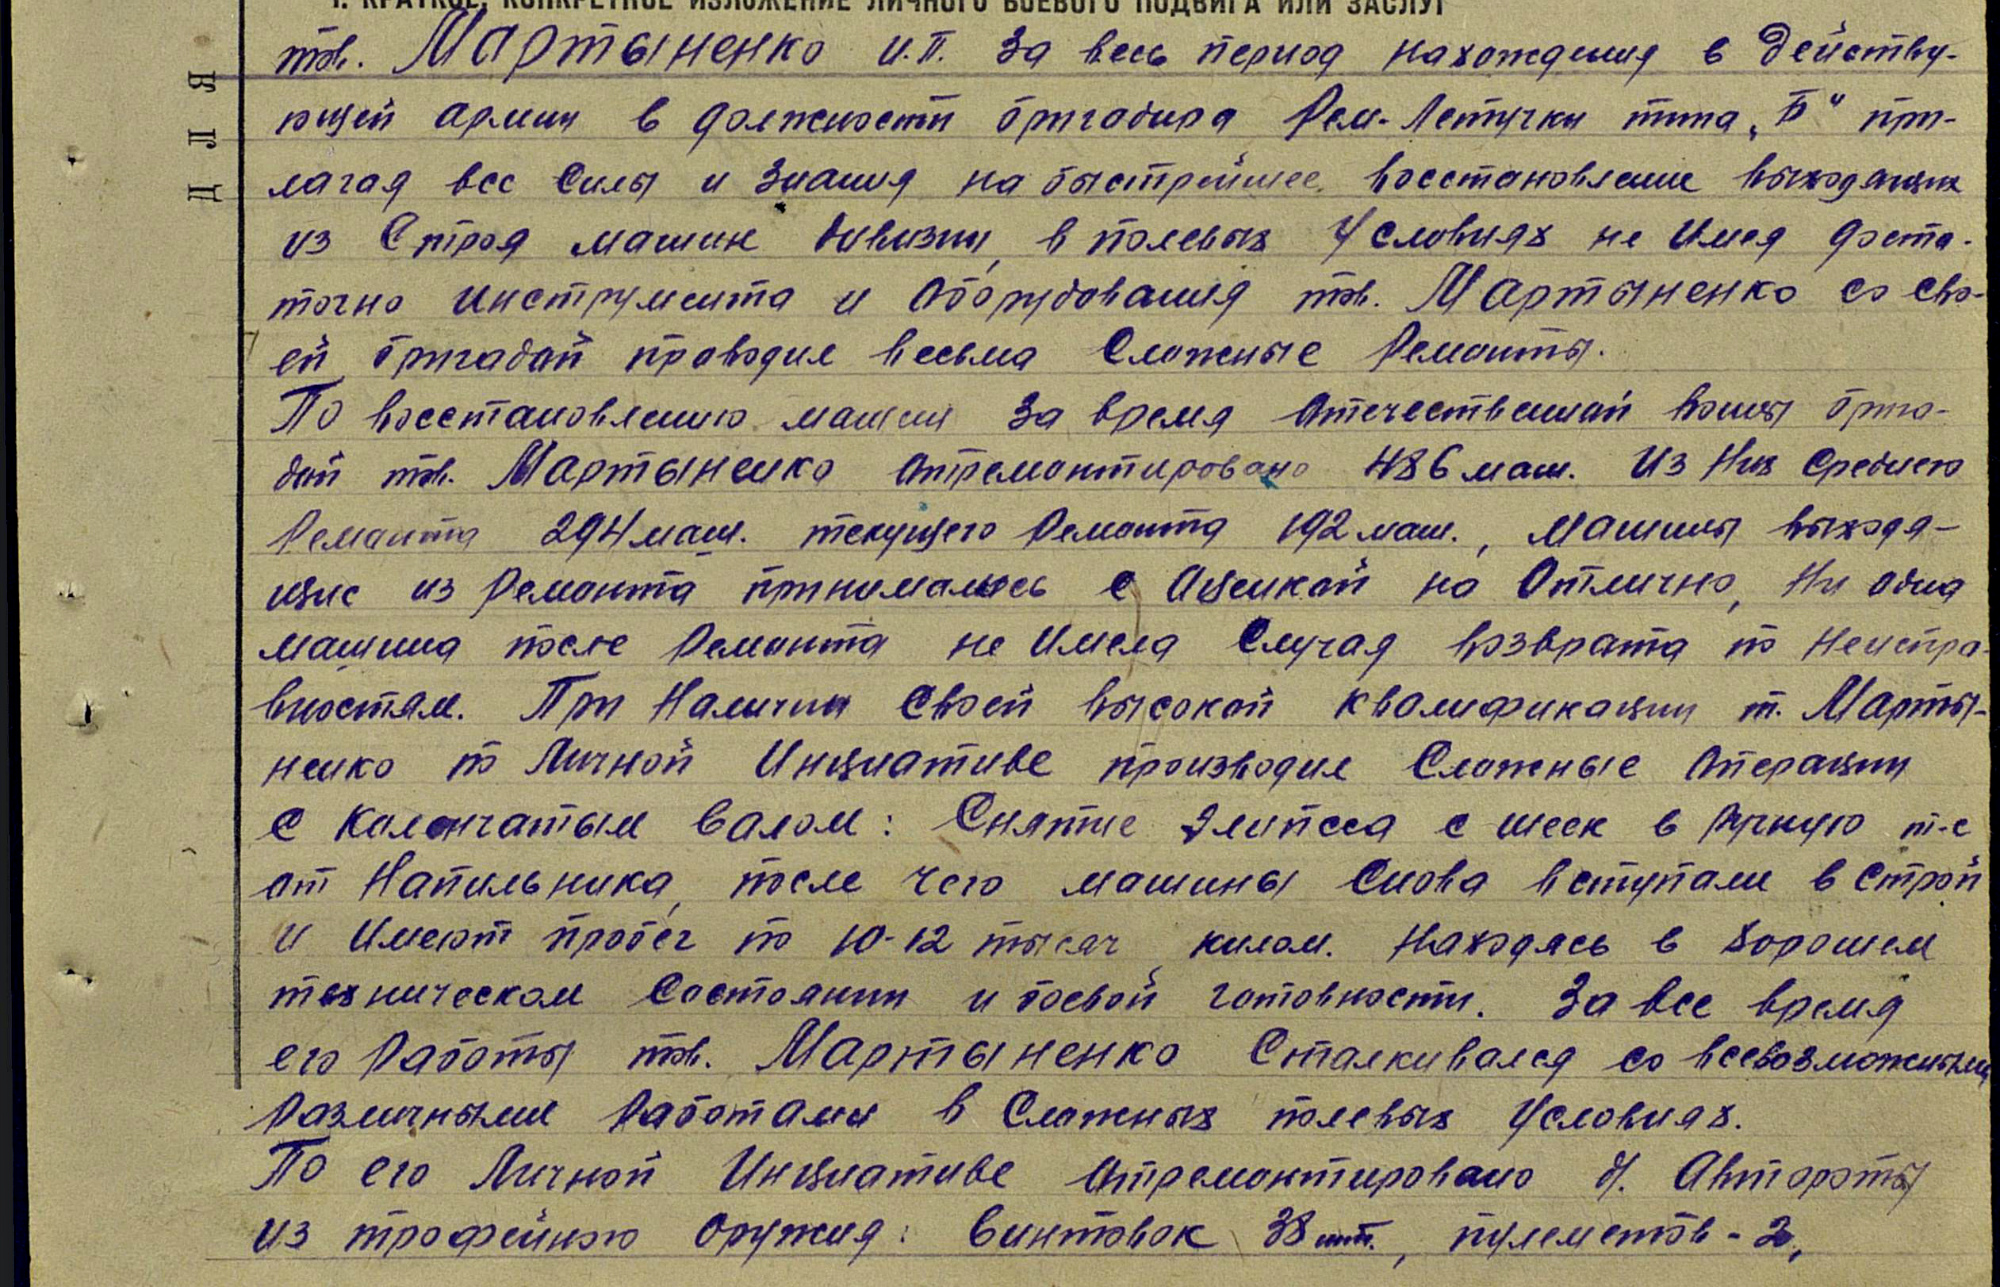 1. КРАТКОЕ, КОНКРЕТНОЕ ИЗЛОЖЕНИЕ ЛИЧНОГО БОЕВОГО ПОДВИГА ИЛИ ЗАСЛУГ
ДЛЯ
тов. Мартыненко И.П. За весь период нахождения в действу-
ющей армии в должности бригадира Рем-Летучки типа „Б" при-
лагая все Силы и Знания на быстрейшее восстановление выходящих
из Строя машин дивизии, в полевых Условиях не Имея доста-
точно Инструмента и Оборудования тов. Мартыненко со сво-
ей бригадой проводил весьма Сложные Ремонты.
По восстановлению машин За время Отечественной войны брига-
дой тов. Мартыненко Отремонтировано 486 маш. Из Них Среднего
Ремонта 294 маш. текущего Ремонта 192 маш., Машины выходя-
щие из Ремонта принимались с Оценкой на Отлично, Ни одна
машина после Ремонта не Имела Случая возврата по Неиспра-
вностям. При Наличии Своей высокой квалификации т. Марты-
ненко по Личной Инициативе производил Сложные Операции
с Коленчатым валом: Снятие Элипсса с шеек в Ручную т-с
от Напильника, после чего машины Снова вступали в Строй
и Имеют пробег по 10-12 тысяч килом. Находясь в хорошем
техническом Состоянии и боевой готовности. За все время
его Работы тов. Мартыненко Сталкивался со всевозможными
Различными Работами в Сложных полевых Условиях.
По его Личной Инициативе Отремонтировано д/ Автороты
из трофейного Оружия: Винтовок 38 шт., пулеметов - 2,